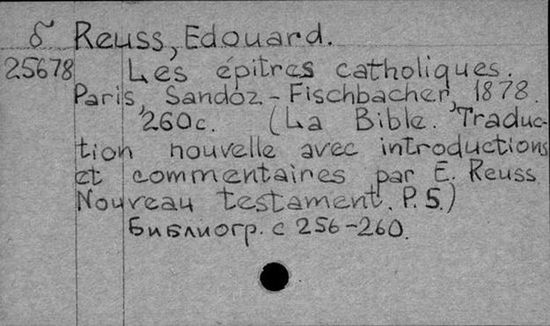 б Reuss, Edouard.
25678 Les épitres catholiques.
Paris, Sandoz - Fischbacher, 1878.
260c. (La Bible. Traduc-
tion nouvelle avec introductions
et commentaires par E. Reuss
Nouveau testament. P. 5.)
Библиогр. с 256-260.